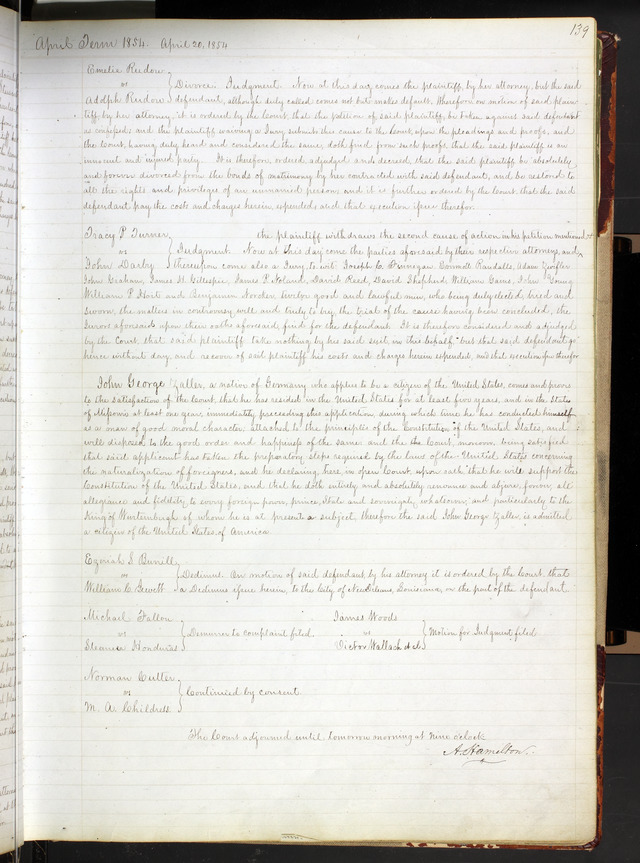 139
April Term 1854. April 20, 1854
Emelie Rudow
vs
Adolph Rudow
Divorce. Judgment. Now at this day comes the plaintiff, by her attorney, but the said
defendant, although duly called comes not but makes default. Wherefore on motion of said plain-
tiff, by her attorney, it is ordered by the Court, that the petition of said plaintiff, be taken against said defendant
as confessed; and the plaintiff waiving a Jury submits this cause to the Court upon the pleadings and proofs, and
the Court, having duly heard and considered the same, doth find from such proofs that the said plaintiff is an
innocent and injured party. It is therefore, ordered, adjudged and decreed, that the said plaintiff be absolutely
divorced from the bonds of matrimony by her contracted with said defendant, and be restored to
all the rights and privileges of an unmarried person; and it is further ordered by the Court that the said
defendant, pay the costs and charges herein expended; and that execution issue therefor.
Tracy P. Turner
vs
John Darby
the plaintiff withdraws the second cause of action in his petition mentioned +
Judgment. Now at this day come the parties aforesaid by their respective attorneys, and
thereupon come also a Jury, to wit: Joseph C. Finnegan, Randalls, Adam
John Graham, James H. Gillespie, James P. Noland, David Reed, David Shepherd, William Cams, John Young,
William P. Hort and Benjamin Norcker twelve good and lawful men, who being duly elected, tried and
sworn, the matters in controversy well and truly to try, the trial of the cause having been concluded, the
Jurors aforesaid upon their oaths aforesaid, find for the defendant. It is therefore considered and adjudged
by the Court, that said plaintiff take nothing by his said suit in this behalf but that said defendant go
hence without day, and recover of said plaintiff his costs and charges herein expended, and that execution issue therefor
John George Zaller, a native of Germany who applies to be a citizen of the United States, comes and proves
to the satisfaction of the Court, that he has resided in the United States for at least five years, and in the State
of Missouri at least one year, immediately preceeding this application, during which time he has conducted himself
as a man of good moral character, attached to the principles of the Constitution of the United States, and
well disposed to the good order and happiness of the same, and the the Court, moreover, being satisfied
that said applicant has taken the preparatory steps required by the laws of the United States concerning
the naturalization of foreigners, and he declaring here, in open Court, upon oath that he will support the
Constitution of the United States, and that he doth entirely and absolutely renounce and abjure, forever, all
allegiance and fidelity to every foreign power, prince, State and sovereignty whatsoever, and particularly to the
King of Wurtimburgh of whom he is at present a subject, therefore the said John George Zaller, is admitted
a citizen of the United States of America.
Ezonah S. Burrill
vs
William C. Jewett
Dedimus. On motion of said defendant by his attorney it is ordered by the Court that
a Dedimus issue herein, to the City of New Orleans, Louisiana, on the part of the defendant.
Michael Fallon
vs
Steamer Honduras
Demurrer to complaint filed.
James Woods
vs
Victor Wallach et al
Motion for Judgment filed
Norman Cutler
vs
M. A. Childress
Continued by consent
The Court adjourned until tomorrow morning at nine o'clock
A. Hamilton.